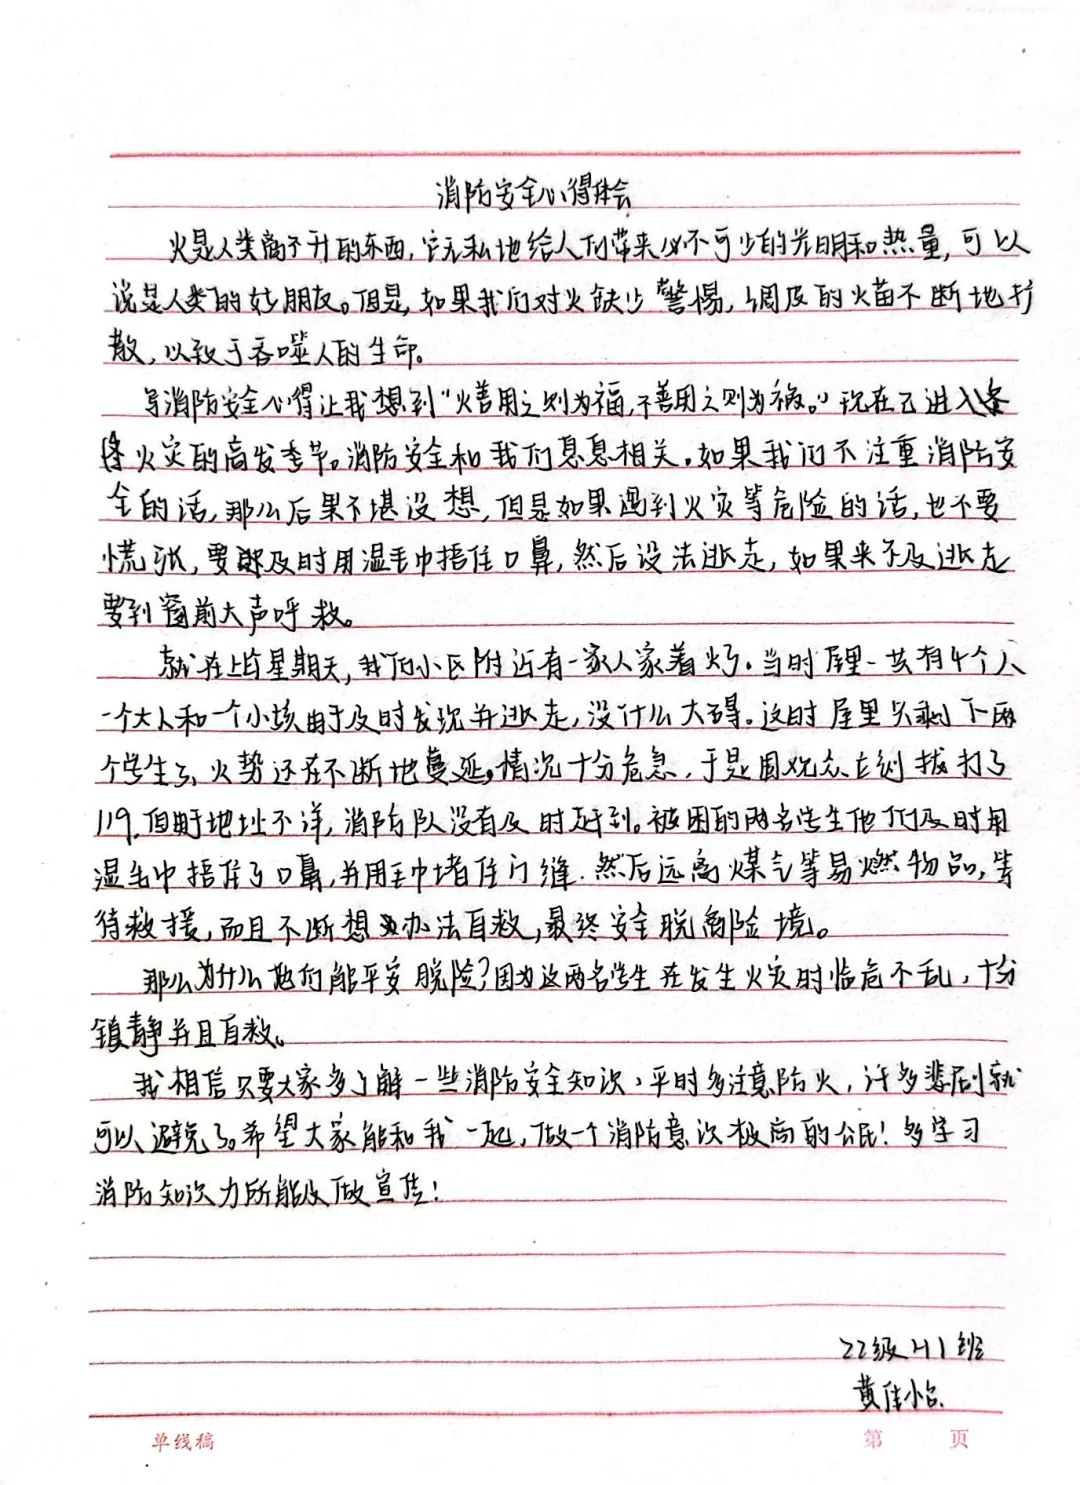 消防安全心得体会
火是人类离不开的东西,它无私地给人们带来必不可少的光明和热量,可以
说是人类的好朋友。但是,如果我们对火缺少警惕,身边的火苗不断地扩
散,以致于吞噬人的生命。
写消防安全心得让我想到“火善用之则为福,不善用之则为祸。”现在已进入冬
季火灾的高发季节。消防安全和我们息息相关。如果我们不注重消防安
全的话,那么后果不堪设想,但是如果遇到火灾等危险的话,也不要
慌张,要及时用湿毛巾捂住口鼻,然后设法逃走,如果来不及逃走
要到窗前大声呼救。
就在上个星期天,我们小区附近有一家人家着火了。当时屋里一共有4个人
一个大人和一个小孩由于及时发现并逃走,没什么大碍。这时屋里只剩下两
个学生了,火势还在不断地蔓延,情况十分危急,于是围观众立刻拨打了
119,但由于地址不详,消防队没有及时赶到。被困的两名学生他们及时用
湿毛巾捂住了口鼻,并用毛巾堵住门缝.然后远离煤气等易燃物品,等
待救援,而且不断想办法自救,最终安全脱离险境。
那么为什么他们能平安脱险?因为这两名学生在发生火灾时临危不乱,十分
镇静并且自救。
我相信只要大家多了解一些消防安全知识,平时多注意防火,许多悲剧就
可以避免了。希望大家能和我一起,做一个消防意识极高的公民!多学习
消防知识力所能及做宣传!
22级H1班
黄佳怡
单线稿
第 页